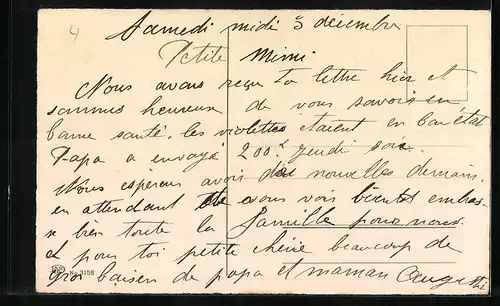 4
Samedi midi 3 décembre
Petite Mimi
Nous avons reçu ta lettre hier et
sommes heureux de vous savoir en
bonne santé. les violettes étaient en bon état
Papa a envoyé 200f jeudi soir.
Nous espérons avoir de nouvelles demain.
en attendant de vous voir bientot embras-
se bien toute la famille pour nous
et pour toi petite chérie beaucoup de
gros baisers de papa et maman
No. 3158